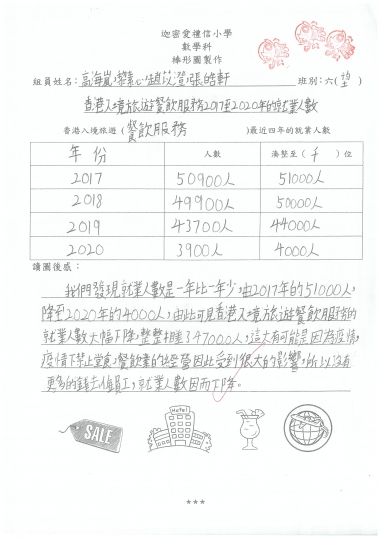 迦密愛禮信小學
數學科
棒形圖製作
組員姓名:高海嵐, 張皓軒 班別:六(望)
香港入境旅遊餐飲服務2017至2020年的就業人數
香港入境旅遊(餐飲服務)最近四年的就業人數
年份 人數 湊整至(千)位
2017 50900人 51000人
2018 49900人 50000人
2019 43700人 44000人
2020 3900人 4000人
讀圖後感:
我們發現就業人數是一年比一年少,由2017年的51000人,
降至2020年的4000人,由此可見香港入境旅遊餐飲服務的
就業人數大幅下降,整整 47000人,這大有可能是因為疫情,
疫情下禁止堂食,餐飲業的經營因此受到很大的影響,所以沒有
更多的錢去僱員工,就業人數因而下降。
SALE
HOTEL
***